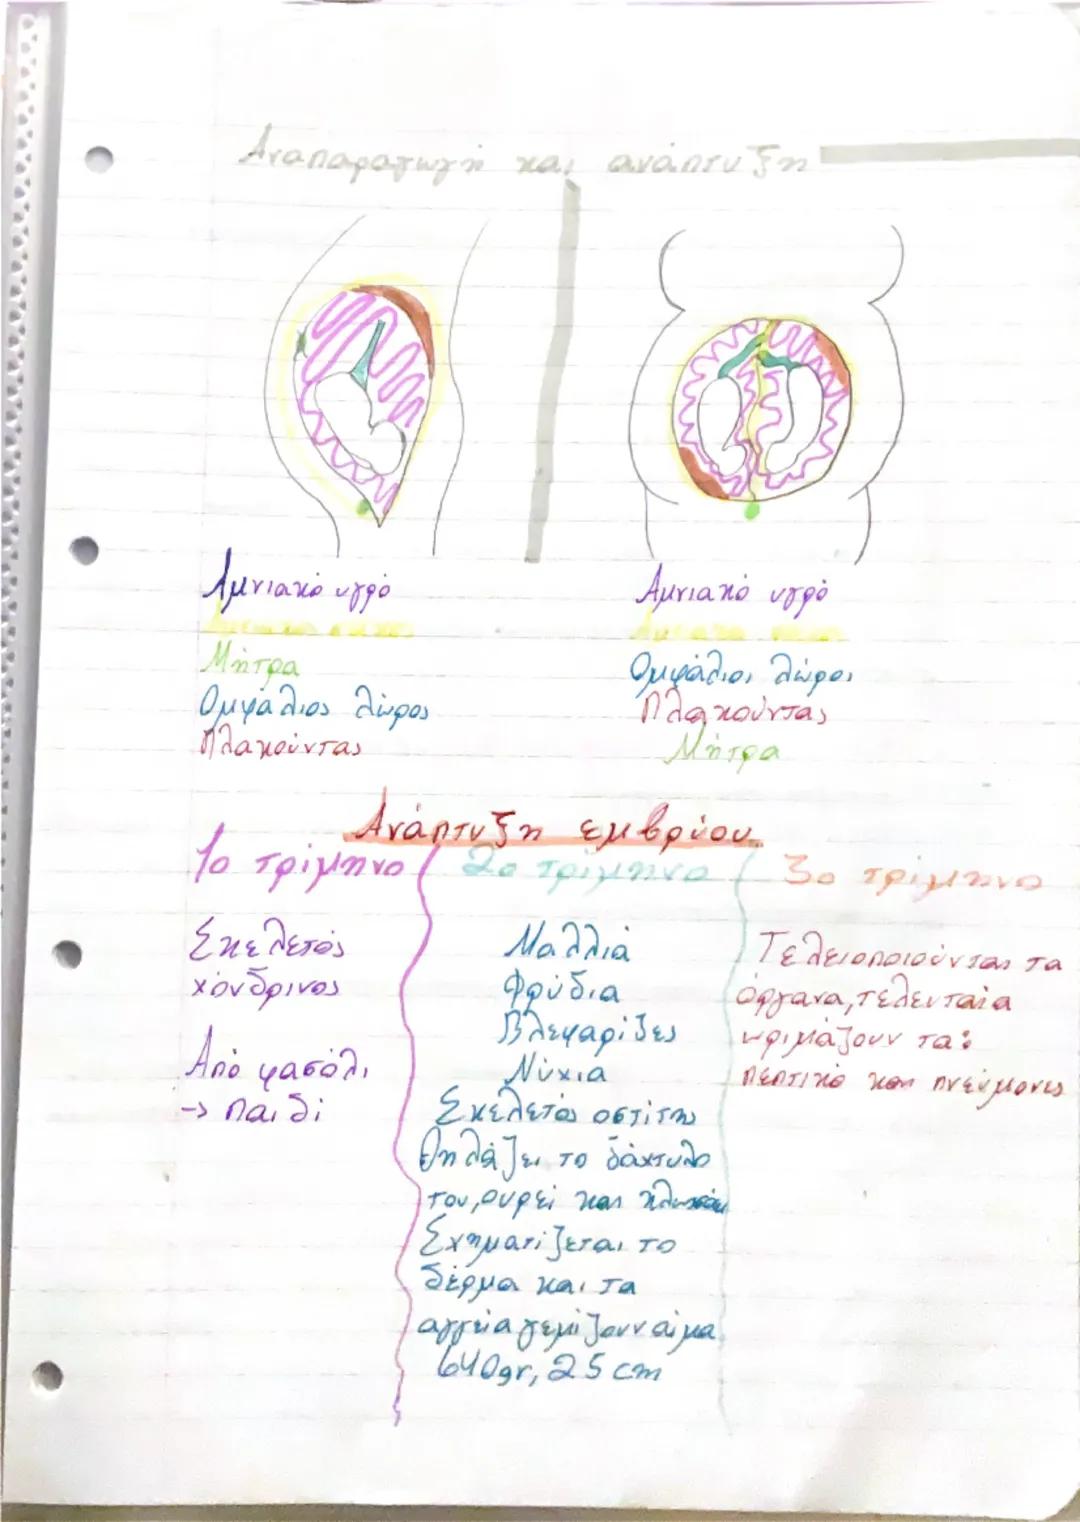 Αναπαραγωγή και ανάπτυξη
Αμνιακό υγρό
Μήτρα
Ομφάλιος λώρος
Πλακούντας
Αμνιακό υγρό
Ομφάλιοι λώροι
Πλακούντας
Μήτρα
Ανάπτυξη εμβρύου
1ο τρίμηνο
Σκελετός
χόνδρινος
Από φασόλι
-> παιδί
2ο τρίμηνο
Μαλλιά
Φρύδια
Βλεφαρίδες
Νύχια
Σκελετός οστίτης
Θηλάζει το δάχτυλο
του, ουρεί και κλωτσάει
Σχηματίζεται το
δέρμα και τα
αγγεία γεμίζουν αίμα
640gr, 25 cm
3ο τρίμηνο
Τελειοποιούνται τα
όργανα, τελευταία
ωριμάζουν τα:
πεπτικό και πνεύμονες